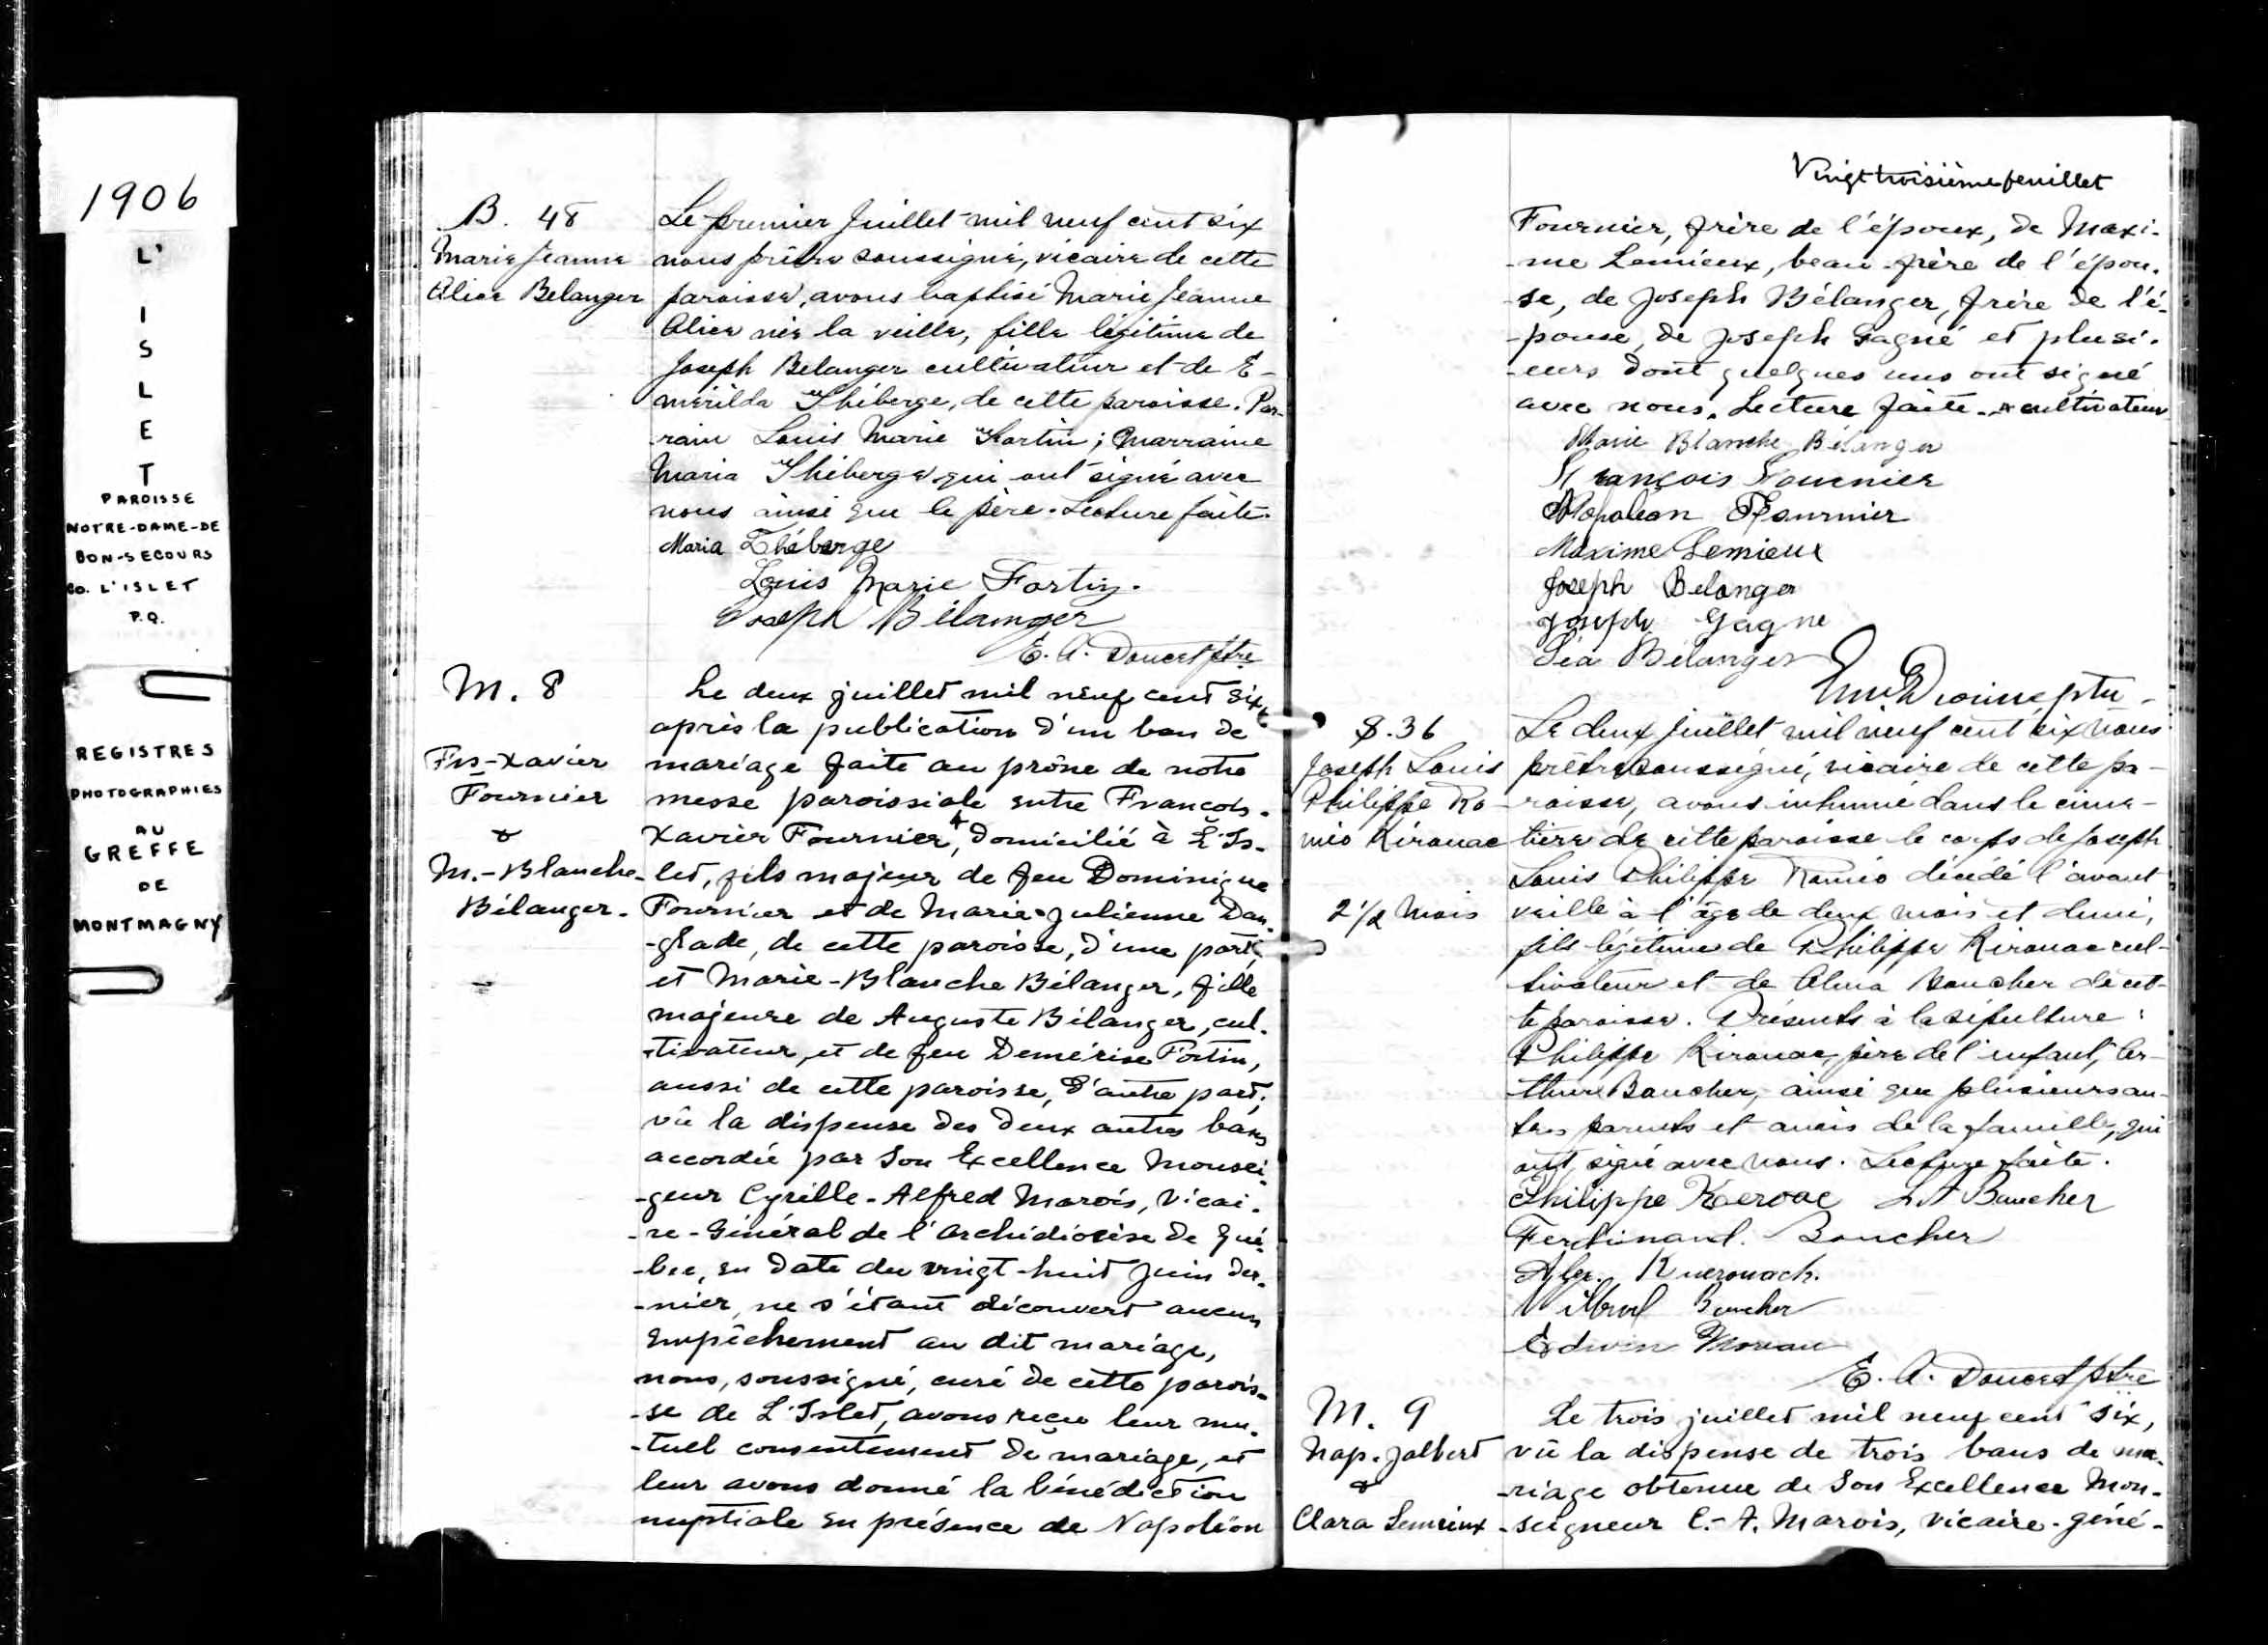 1906
L'
I
S
L
E
T
PAROISSE
NOTRE-DAME-DE
BON-SECOURS
Co. L'ISLET
P.Q.
REGISTRES
PHOTOGRAPHIES
AU
GREFFE
DE
MONTMAGNY
B. 48
Marie Jeanne
Alice Belanger
Le premier Juillet mil neuf cent six
nous prêtre soussigné, vicaire de cette
paroisse, avons baptisé Marie Jeanne
Alice née la veille, fille légitime de
Joseph Belanger cultivateur et de E-
mérilda Théberge, de cette paroisse. Par-
rain Louis Marie Fortin; Marraine
Maria Théberge qui ont signé avec
nous ainsi que le père. Lecture faite.
Maria Théberge
Louis Marie Fortin.
Joseph Bélanger
E. A. Doucet ptre
M. 8
Frs-Xavier
Fournier
&
M.-Blanche
Bélanger.
Le deux juillet mil neuf cent six,
après la publication d'un ban de
mariage faite au prône de notre
messe paroissiale entre François-
Xavier Fournier, domicilié à L'Is-
let, fils majeur de feu Dominique
Fournier et de Marie-Julienne Dan-
-glade, de cette paroisse, d'une part,
et Marie-Blanche Bélanger, fille
majeure de Auguste Bélanger, cul-
-tivateur, et de feu Demérise Fortin,
aussi de cette paroisse, d'autre part;
vû la dispense des deux autres bans
accordée par Son Excellence Monsei-
-geur Cyrille-Alfred Marois, Vicai-
-re-Général de l'archidiocèse de Qué-
-bec, en date du vingt-huit juin der-
-nier, ne s'étant découvert aucun
empêchement au dit mariage,
nous, soussigné, curé de cette parois-
-se de L'Islet, avons reçu leur mu-
-tuel consentement de mariage, et
leur avons donné la bénédiction
nuptiale en présence de Napoléon
Vingt troisième feuillet
Fournier, frère de l'époux, de Maxi-
-me Lemieux, beau-frère de l'épou-
-se, de Joseph Bélanger, frère de l'é-
-pouse, de Joseph Gagné et plusi-
-eurs dont quelques uns ont signé
avec nous. Lecture faite. * cultivateur
Marie Blanche Bélanger
François Fournier
Napoléon Fournier
Maxime Lemieux
Joseph Belanger
Joseph Gagne
Léa Bélanger
ptre
S. 36
Joseph Louis
Philippe Ro-
méo Kirouac
2 1/2 mois
Le deux Juillet mil neuf cent six nous
prêtre soussigné, vicaire de cette pa-
-roisse, avons inhumé dans le cime-
tière de cette paroisse le corps de Joseph
Louis Philippe Roméo décédé l'avant
veille à l'âge de deux mois et demi,
fils légitime de Philippe Kirouac cul-
tivateur et de Alma Boucher de cet-
te paroisse. Présents à la sépulture:
Philippe Kirouac, père de l'enfant, Ar-
thur Boucher, ainsi que plusieurs au-
tres parents et amis de la famille, qui
ont signé avec nous. Lecture faite.
Philippe Keroac L A Boucher
Ferdinand. Boucher
Kuerouack.
Boucher
Edwin Moreau
E. A. Doucet ptre
M. 9
Nap. Jalbert
&
Clara Lemieux
Le trois juillet mil neuf cent six,
vû la dispense de trois bans de ma-
-riage obtenue de Son Excellence Mon-
-seigneur C.-A. Marois, vicaire-géné-